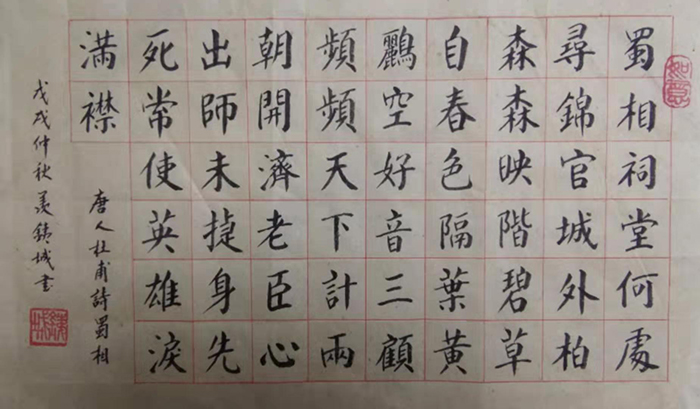 如意
蜀相祠堂何處
尋錦官城外柏
森森映階碧草
自春色隔葉黃
鸝空好音三顧
頻頻天下計兩
朝開濟老臣心
出師未捷身先
死常使英雄淚
滿襟
唐人杜甫詩蜀相
戊戌仲秋 城書